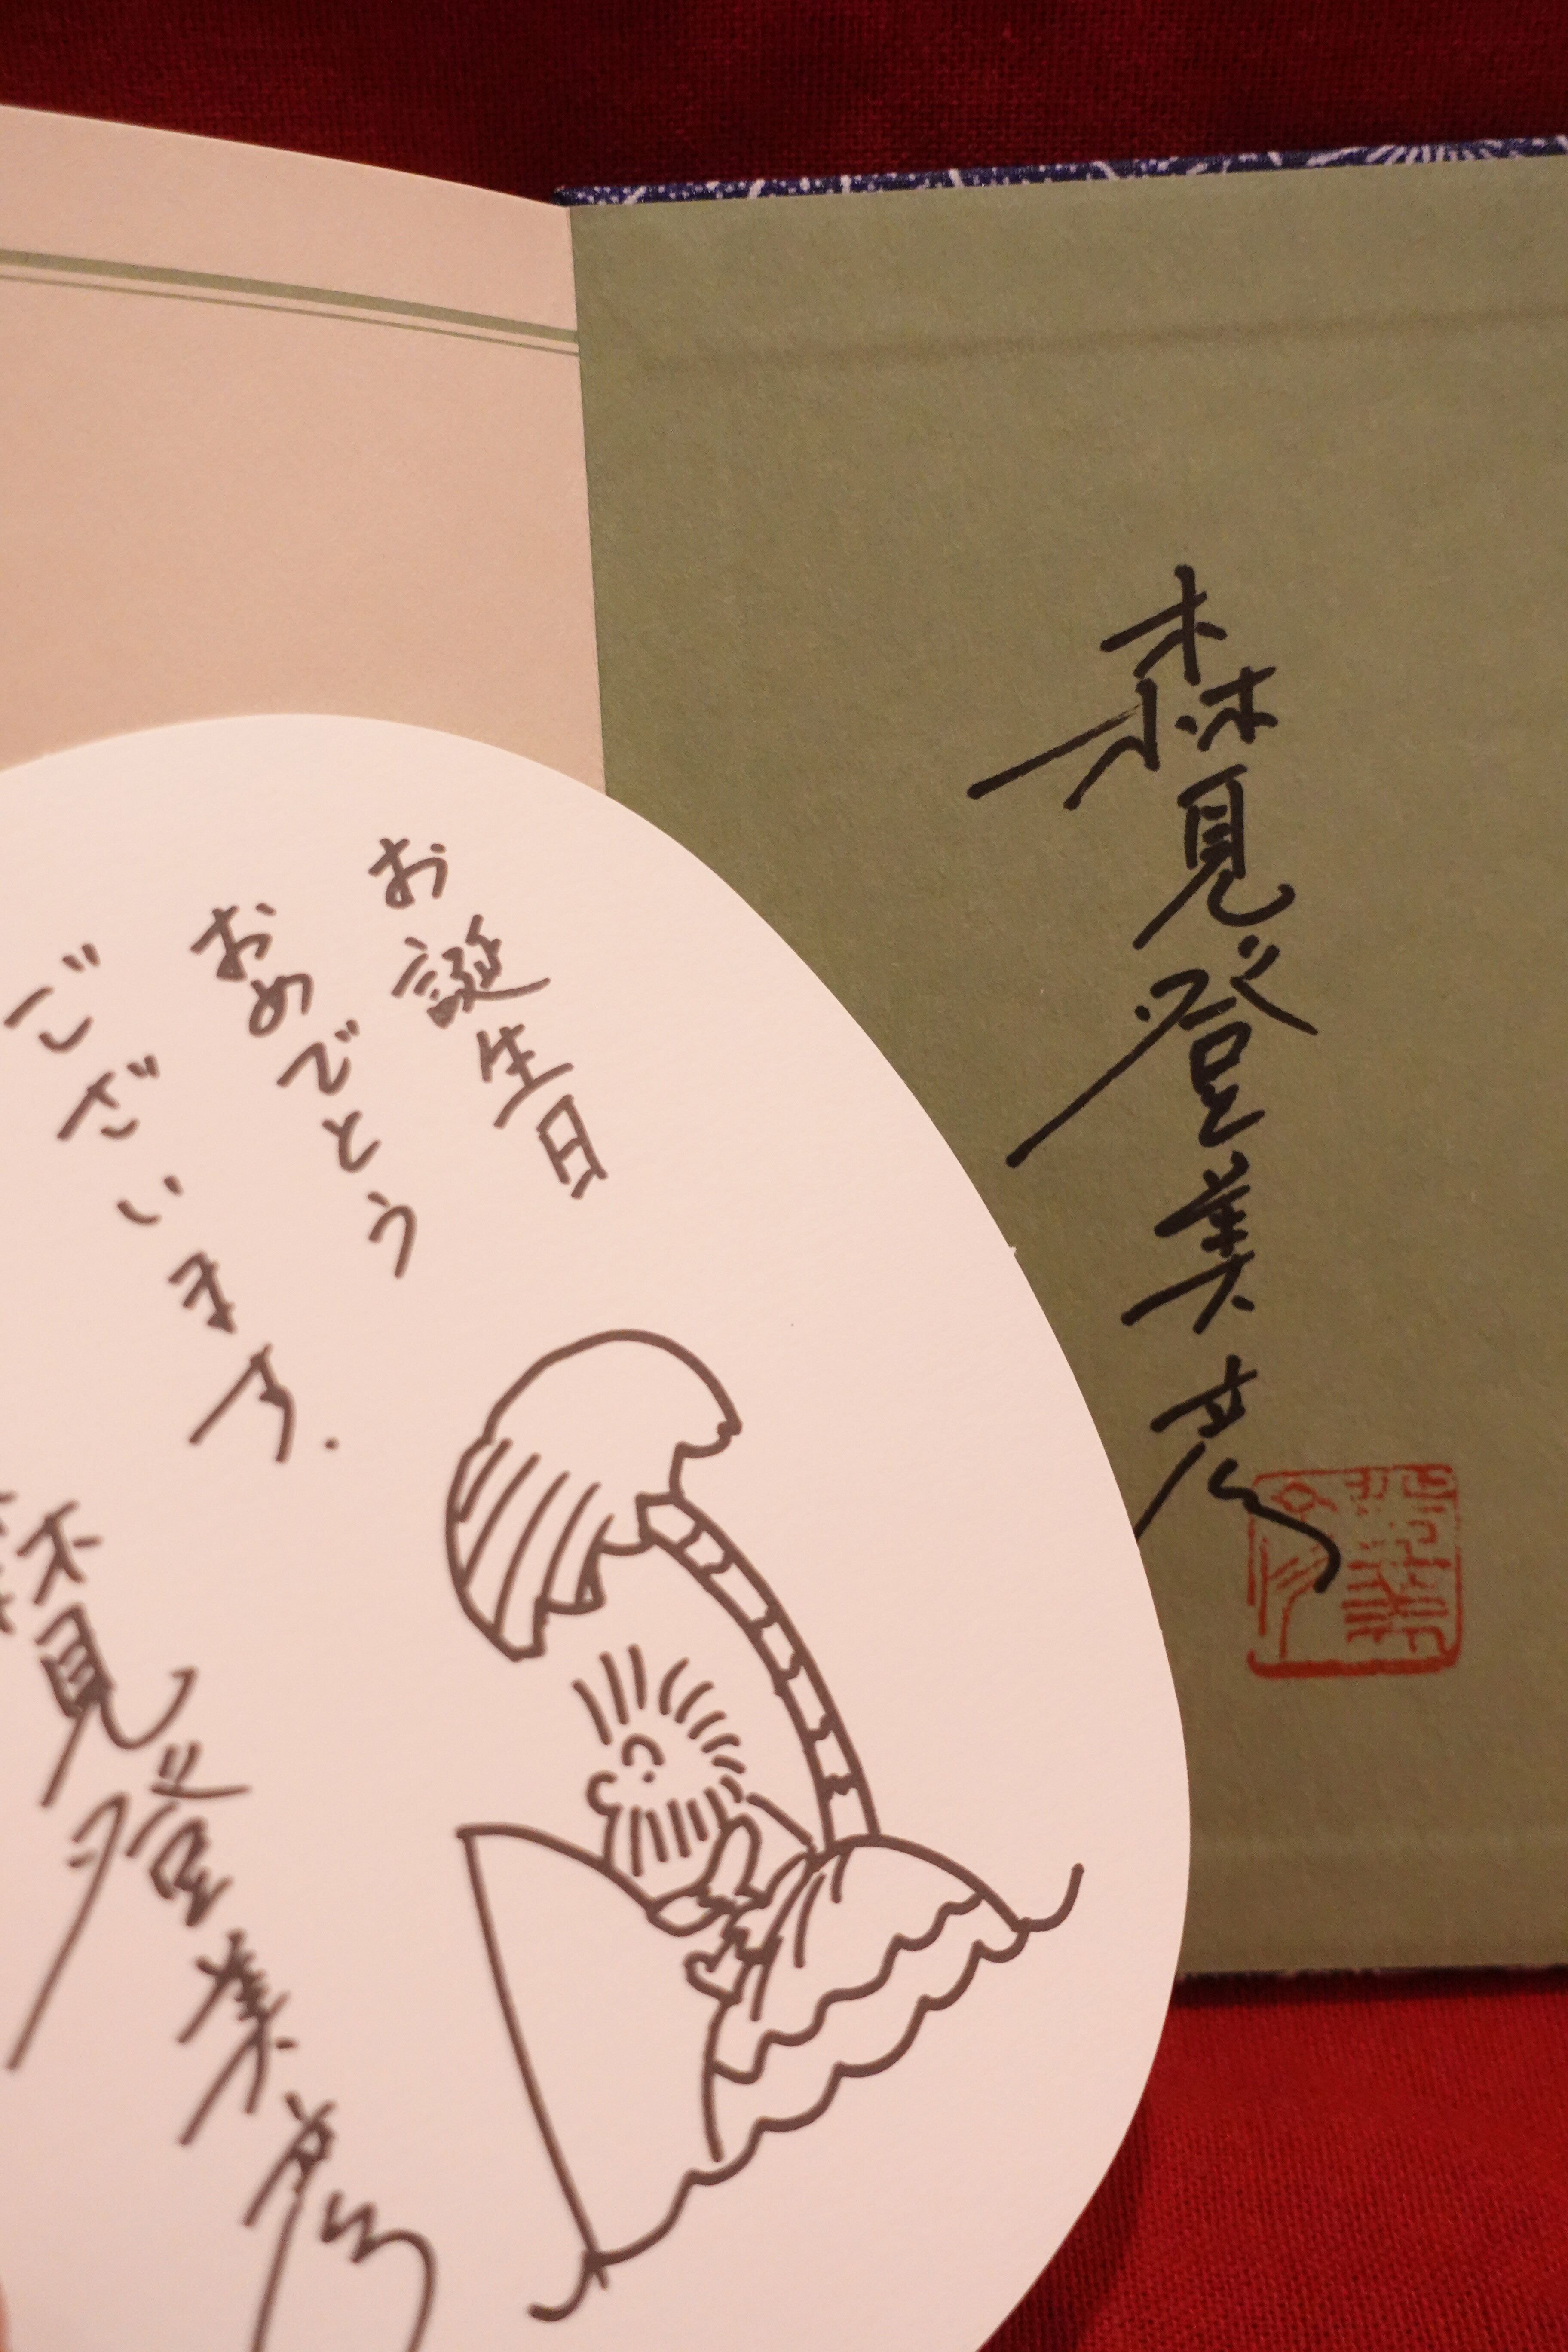 森見登美彦
お誕生日
おめでとう
ございます.
森見登美彦